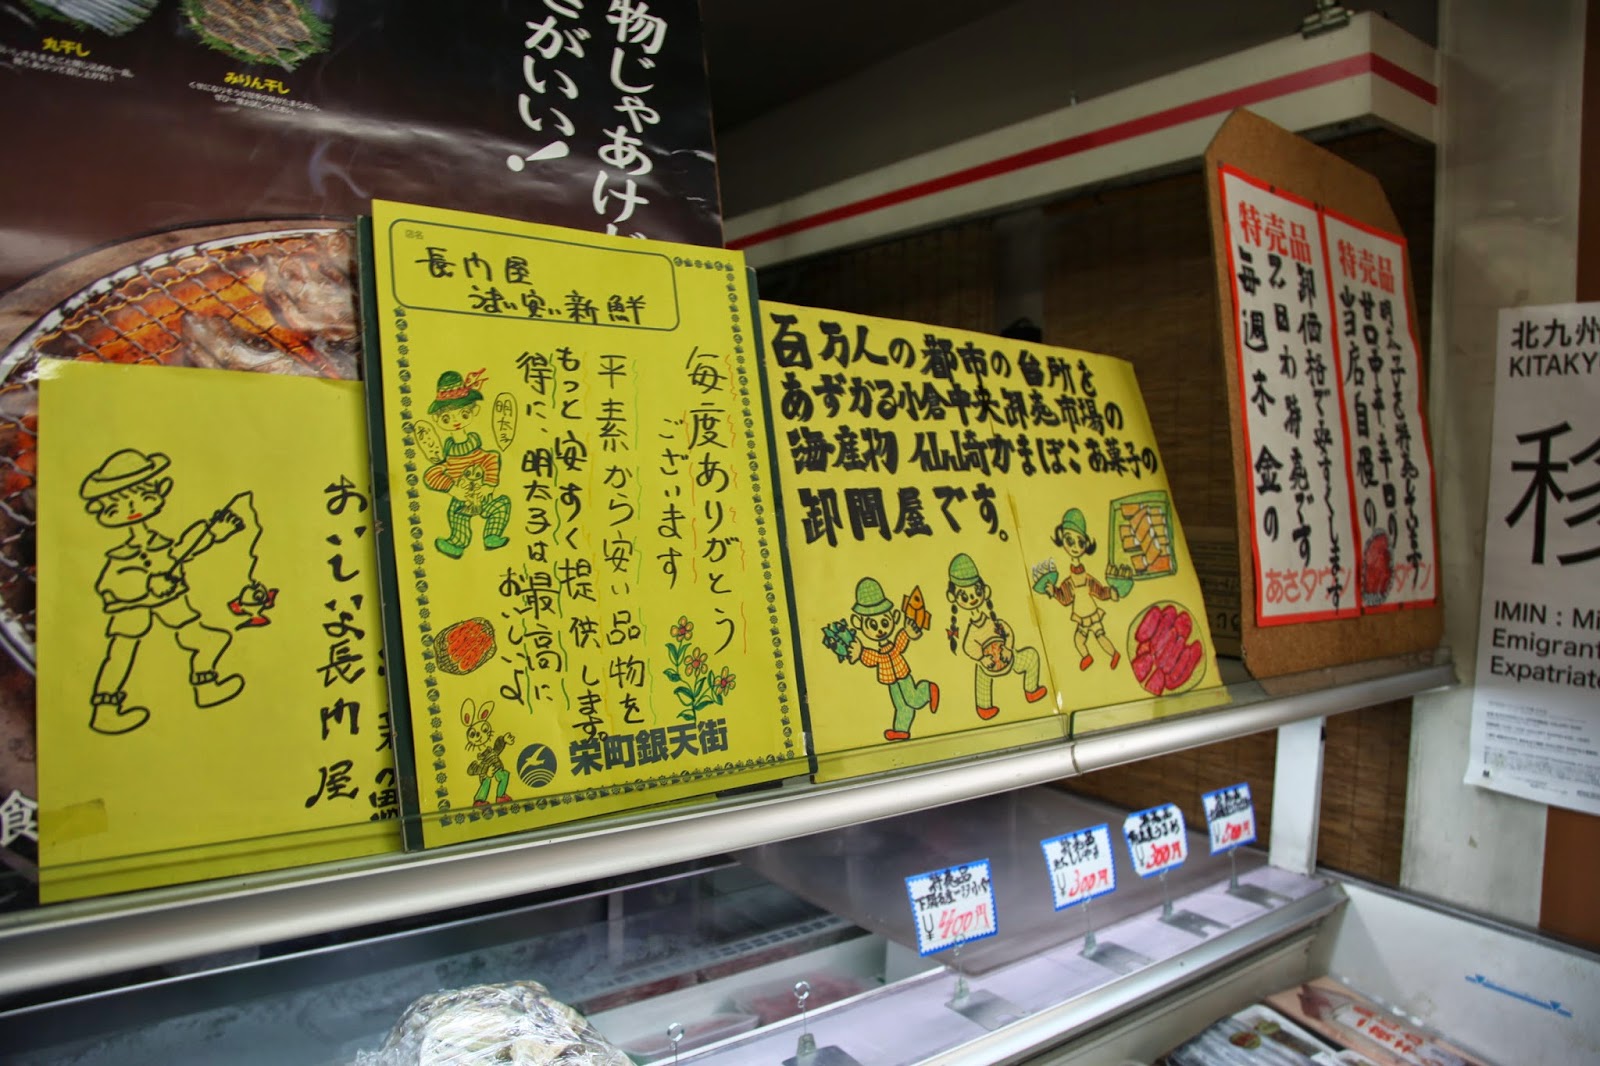 丸干し
みりん干し
ぜひ一度お試しください。
物じゃあけ
さがいい!
食
おいしいよ長門屋
店名
長門屋
うまい安い新鮮
毎度ありがとう
ございます
平素から安い品物を
もっと安すく提供します。
得に、明太子は最高に
おいしいよ
明太子
栄町銀天街
百万人の都市の台所を
あずかる小倉中央卸売市場の
海産物 仙崎かまぼこお菓子の
卸問屋です。
特売品
卸価格で安すくします
乙回わ特売です
毎週木金の
あさタウン
特売品
明太子を特売しいます
甘口中辛辛口の
当店自慢の
タウン
北九州
KITAKY
移
IMIN : Mi
Emigrant
Expatriate
特売品
¥400円
¥300円
¥300円
¥500円